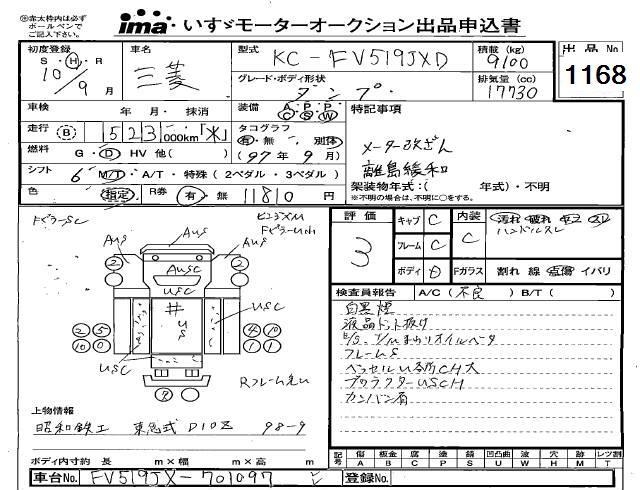 ※赤太枠内は必ず
ボールペンで
ご記入下さい。
ima いすゞモーターオークション出品申込書
初度登録 S・H・R 10年 9月
車名 三菱
型式 KC-FV519JXD
積載 (kg) 9100
グレード・ボディ形状 ダンプ
排気量 (cc) 17730
出品 No 1168
車検 年 月・抹消
装備 A/C P/S P/W
特記事項
走行 B 523,000km「米」
タコグラフ 有・無 別体
(97年 9月)
メーター改ざん
離島緩和
燃料 G・D・HV 他( )
シフト 6 M/T・A/T・特殊(2ペダル・3ペダル)
架装物年式:( 年式)・不明
※不明の場合は、不明に○をする。
色 (指定) R券 有・無 11810円
評価 3
キャブ C
フレーム C
ボディ D
内装 C
汚れ 破れ
ハンドルスレ
Fガラス 割れ 線 点傷 イバリ
検査員報告 A/C(不良) B/T( )
白黒煙
液晶ドット抜け
フレームS
ベッセルU各所CH大
プロテクターUSCH
カンバン有
FピラーSC
AUS AUS
AUSC
井 US
USC
USC
2 2
2 5 4 10
10 0 1 1
7
Rフレーム先U
上物情報
昭和鉄工 東急式 D10Z 98-9
ボディ内寸約 長 m×幅 m×高 m
記号 傷 A 板金 B 腐 C 塗 P 鯖 S 凹凸曲 U 波 W 穴 H 跡 M レツ割 T
車台No. FV519JX-701097
登録No.